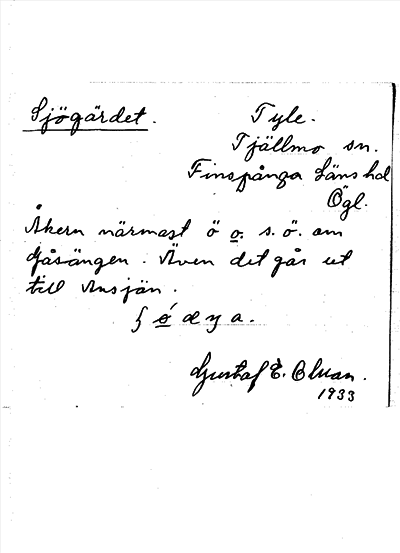 Sjögärdet. Tyle.
Tjällmo sn.
Finspånga läns hd
Ögl.
Åkern närmast ö o. s. ö. om
Gåsängen. Även det går ut
till Ansjön.
Gustaf E. Olman.
1933